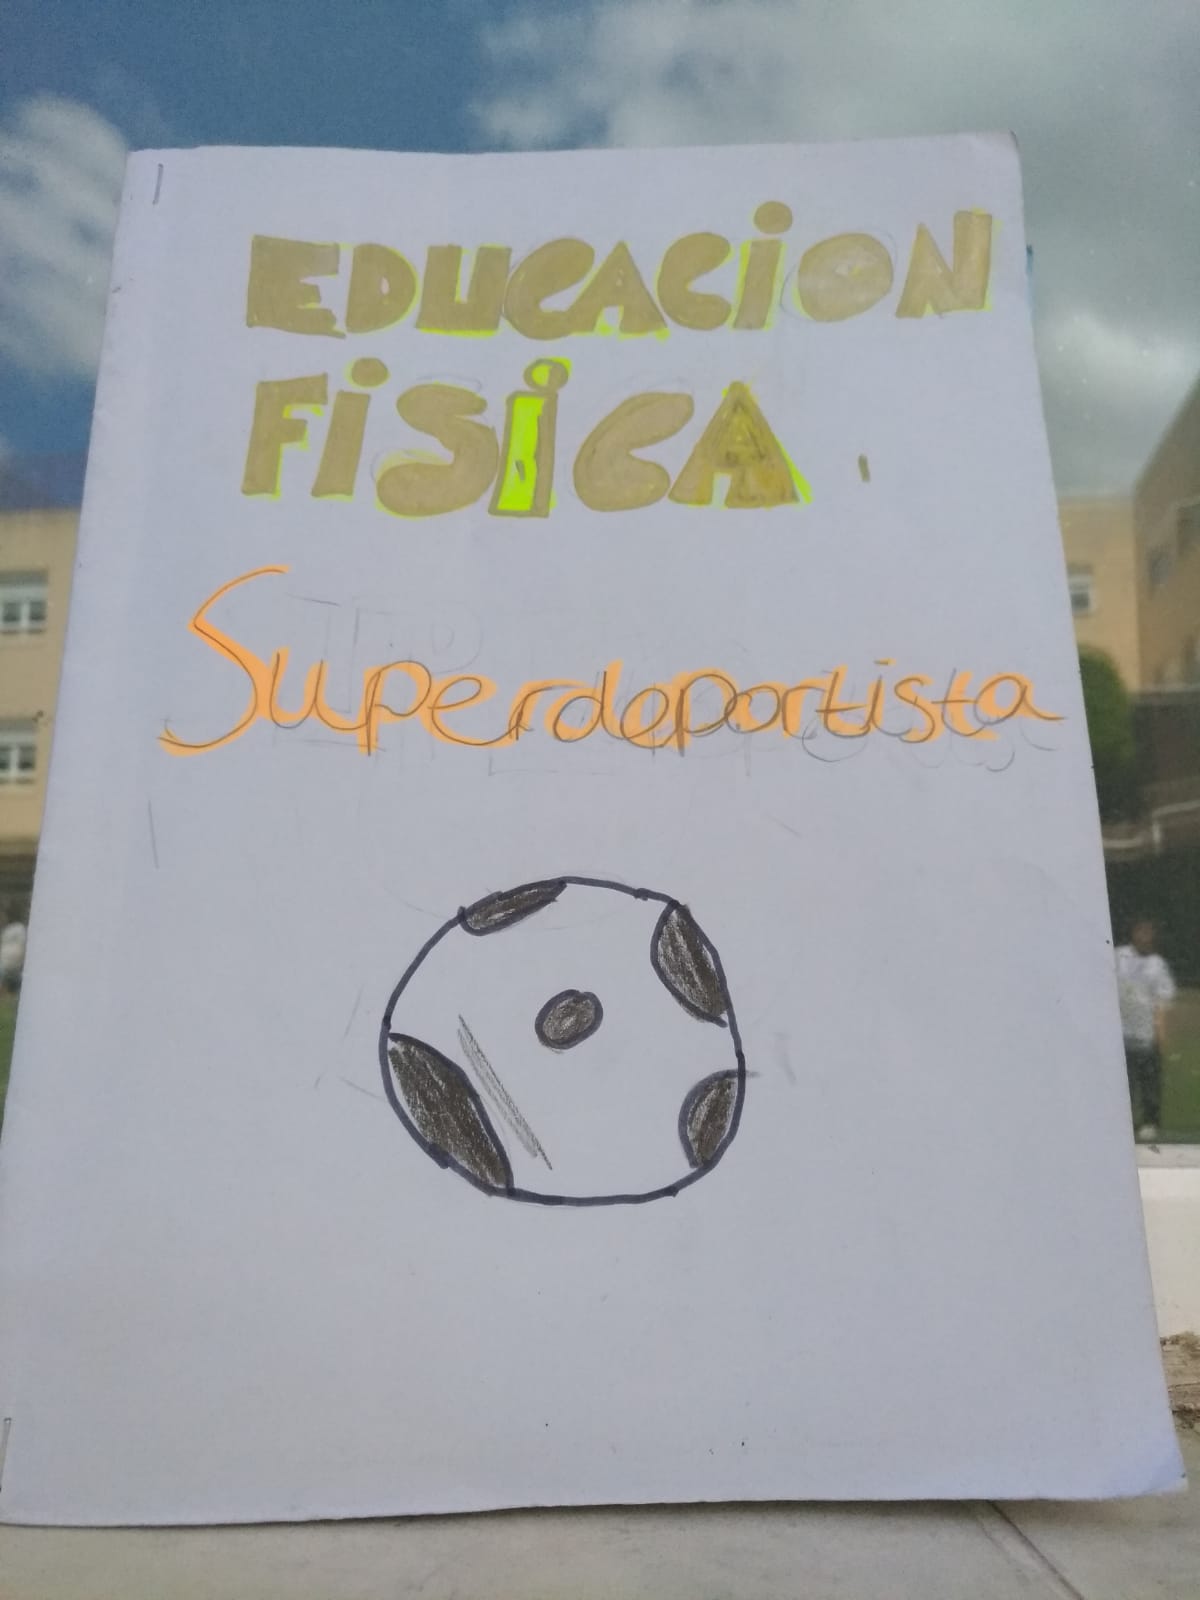 EDUCACiON
FiSiCA
Superdeportista